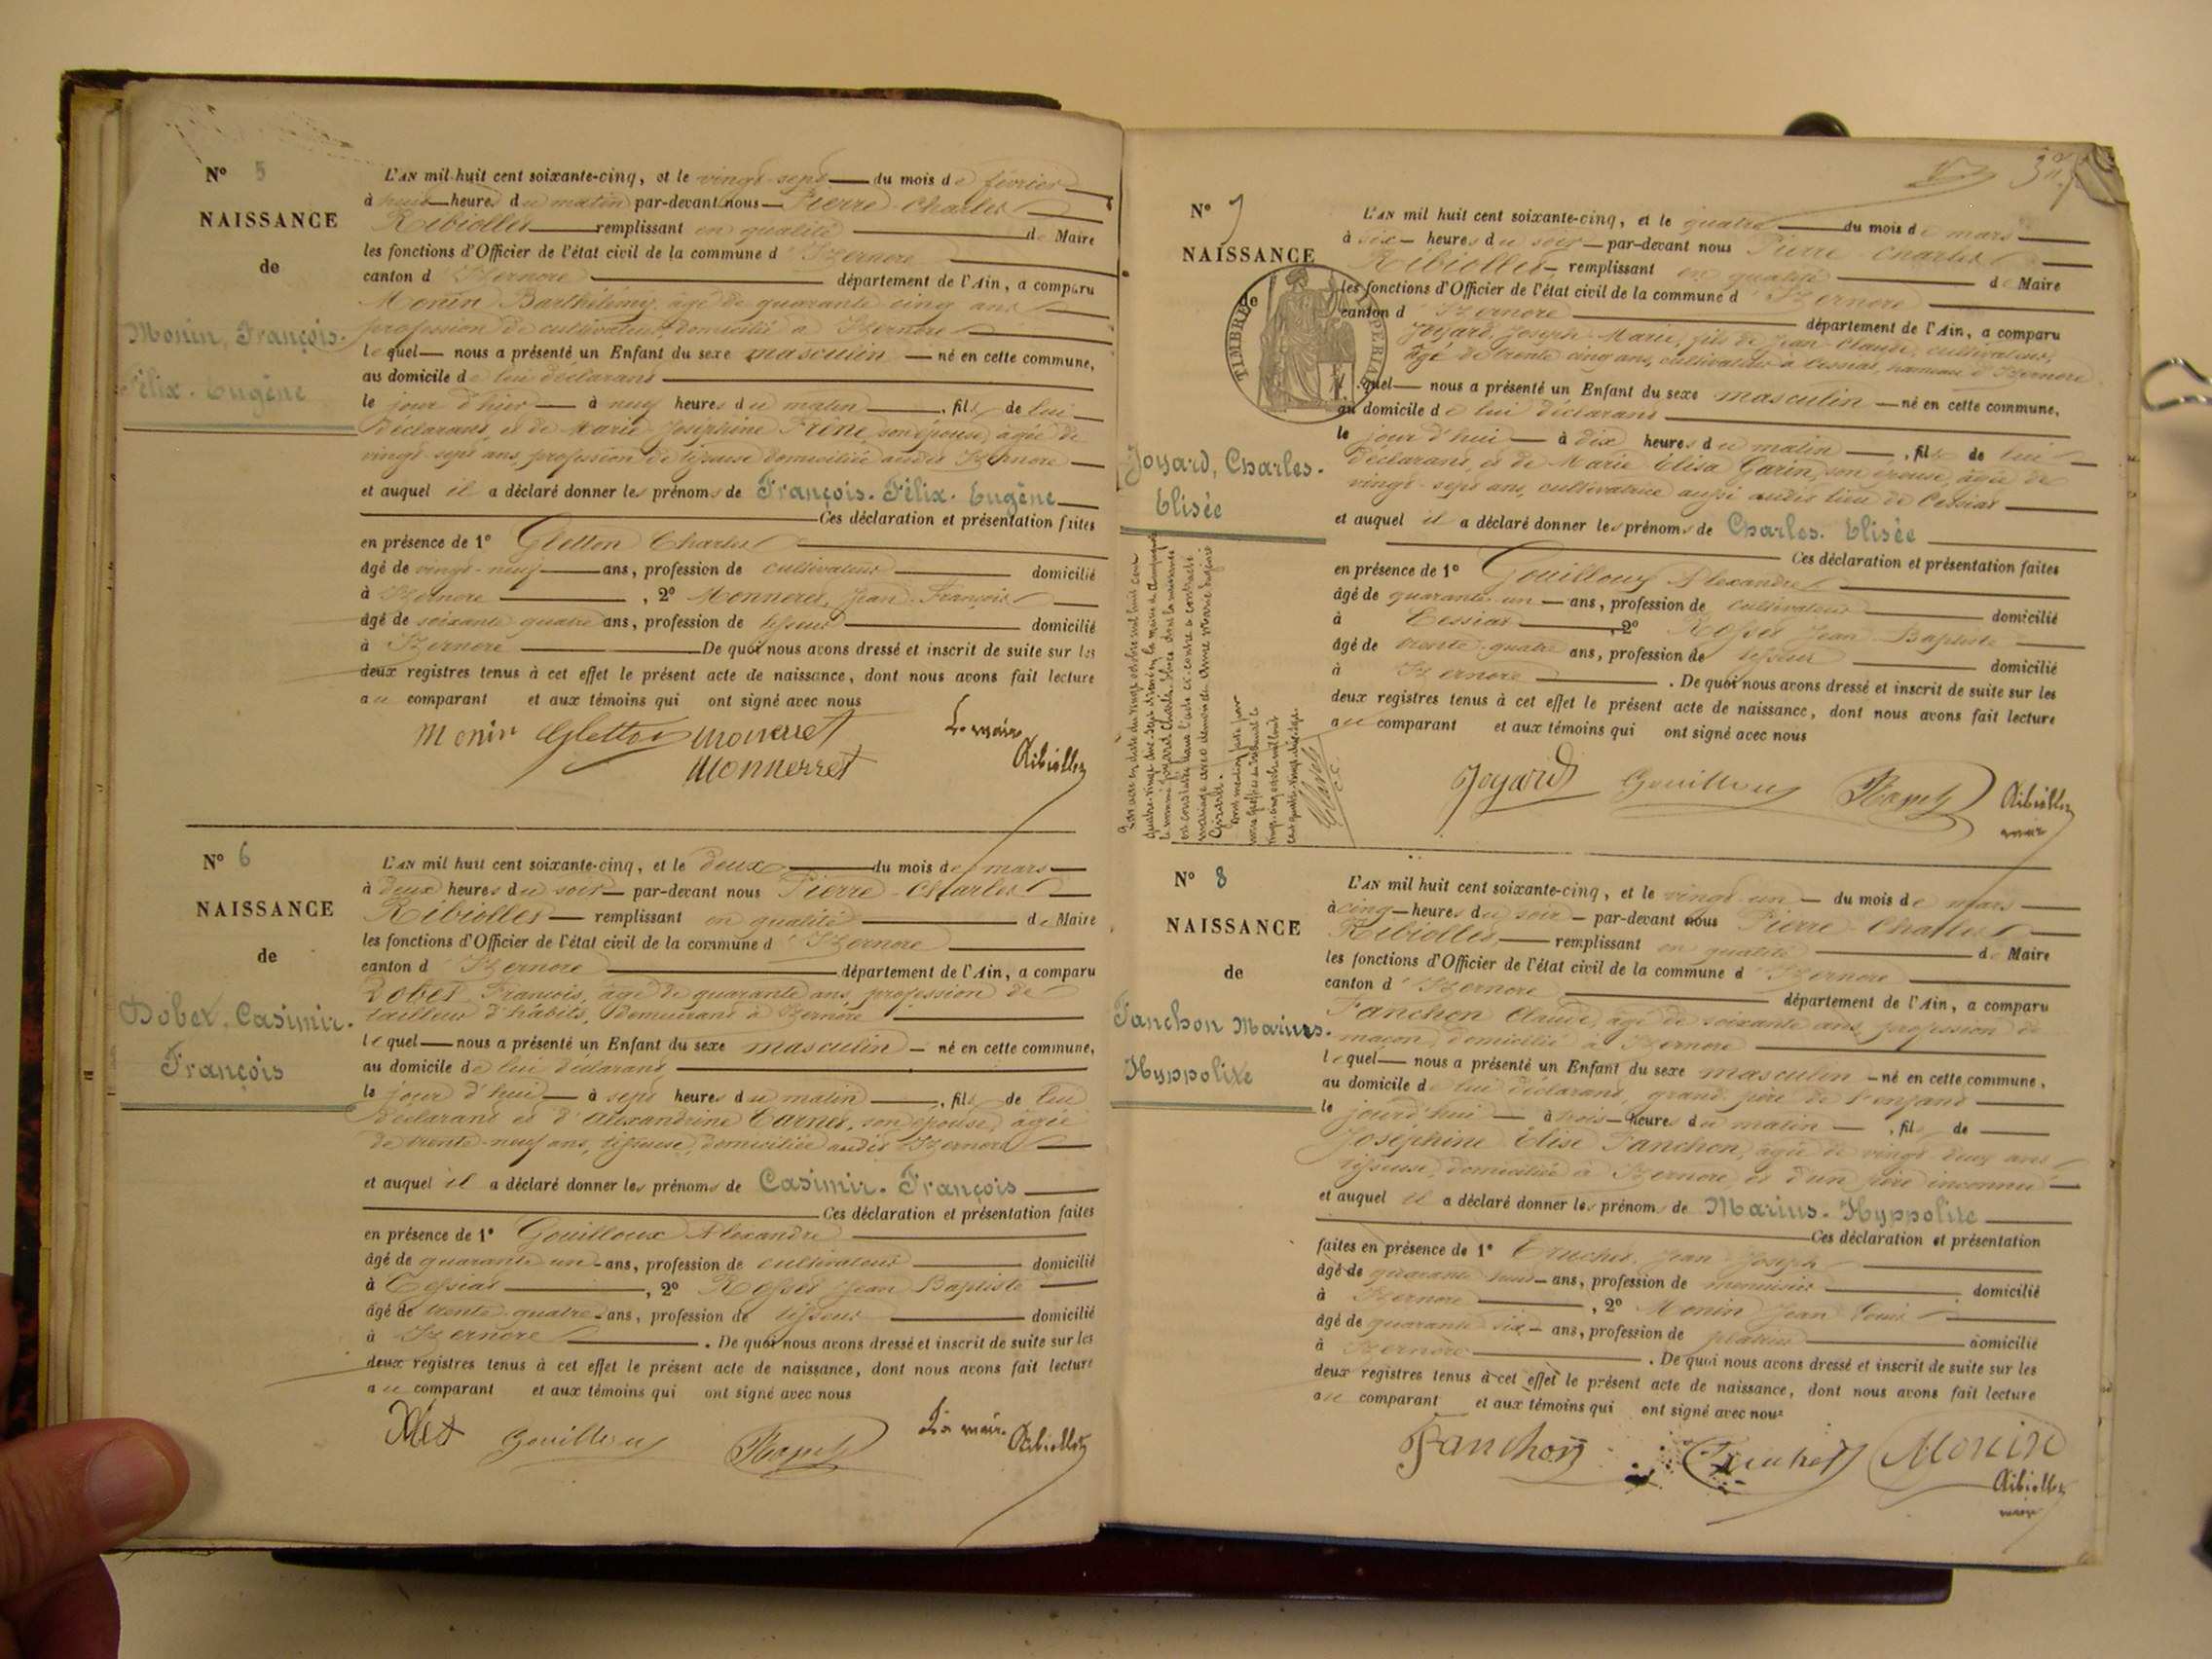 N° 5
NAISSANCE
de
Monin, François-
Félix-Eugène
L'AN mil huit cent soixante-cinq, et le vingt-sept du mois de février
à huit heures du matin par-devant nous Pierre-Charles
Ribiollet remplissant en qualité de Maire
les fonctions d'Officier de l'état civil de la commune d'Izernore
canton d'Izernore département de l'Ain, a comparu
Monin Barthélémy, âgé de quarante cinq ans
profession de cultivateur domicilié à Izernore
lequel nous a présenté un Enfant du sexe masculin né en cette commune,
au domicile de lui déclarant
le jour d'hier à neuf heures du matin, fils de lui
déclarant, et de Marie Joséphine Frène, son épouse, âgée de
vingt-sept ans, profession de tisseuse domiciliée audit Izernore
et auquel il a déclaré donner les prénoms de François-Félix-Eugène
Ces déclaration et présentation faites
en présence de 1° Gletton Charles
âgé de vingt-neuf ans, profession de cultivateur domicilié
à Izernore, 2° Monneret, Jean-François
âgé de soixante quatre ans, profession de tisseur domicilié
à Izernore De quoi nous avons dressé et inscrit de suite sur les
deux registres tenus à cet effet le présent acte de naissance, dont nous avons fait lecture
au comparant et aux témoins qui ont signé avec nous
Monin Gletton Monneret Le maire
Monnerret Ribiollet
N° 6
NAISSANCE
de
Dobet, Casimir-
François
L'AN mil huit cent soixante-cinq, et le deux du mois de mars
à deux heures du soir par-devant nous Pierre-Charles
Ribiollet remplissant en qualité de Maire
les fonctions d'Officier de l'état civil de la commune d'Izernore
canton d'Izernore département de l'Ain, a comparu
Dobet François, âgé de quarante ans, profession de
tailleur d'habits, demeurant à Izernore
lequel nous a présenté un Enfant du sexe masculin né en cette commune,
au domicile de lui déclarant
le jour d'hui à sept heures du matin, fils de lui
déclarant et d'Alexandrine Carnet, son épouse, âgée
de trente-neuf ans, tisseuse, domiciliée audit Izernore
et auquel il a déclaré donner les prénoms de Casimir-François
Ces déclaration et présentation faites
en présence de 1° Gouilloux Alexandre
âgé de quarante un ans, profession de cultivateur domicilié
à Cessiat, 2° Rosset Jean Baptiste
âgé de trente-quatre ans, profession de tisseur domicilié
à Izernore. De quoi nous avons dressé et inscrit de suite sur les
deux registres tenus à cet effet le présent acte de naissance, dont nous avons fait lecture
au comparant et aux témoins qui ont signé avec nous
Gouilloux Rosset Le maire Ribiollet
N° 7
NAISSANCE
de
TIMBRE IMPÉRIAL
Joyard, Charles-
Elisée
L'AN mil huit cent soixante-cinq, et le quatre du mois de mars
à six heures du soir par-devant nous Pierre-Charles
Ribiollet remplissant en qualité de Maire
les fonctions d'Officier de l'état civil de la commune d'Izernore
canton d'Izernore département de l'Ain, a comparu
Joyard, Joseph-Marie, fils de Jean-Claude, cultivateur,
âgé de trente cinq ans, cultivateur à Cessiat, hameau d'Izernore
lequel nous a présenté un Enfant du sexe masculin né en cette commune,
au domicile de lui déclarant
le jour d'hui à dix heures du matin, fils de lui
déclarant, et de Marie Elisa Garin, son épouse, âgée de
vingt-sept ans, cultivatrice aussi audit lieu de Cessiat
et auquel il a déclaré donner les prénoms de Charles-Elisée
Ces déclaration et présentation faites
en présence de 1° Gouilloux Alexandre
âgé de quarante un ans, profession de cultivateur domicilié
à Cessiat, 2° Rosset Jean-Baptiste
âgé de trente-quatre ans, profession de tisseur domicilié
à Izernore. De quoi nous avons dressé et inscrit de suite sur les
deux registres tenus à cet effet le présent acte de naissance, dont nous avons fait lecture
au comparant et aux témoins qui ont signé avec nous
Joyard Gouilloux Rosset Ribiollet
maire
N° 8
NAISSANCE
de
Fanchon Marius-
Hyppolite
L'AN mil huit cent soixante-cinq, et le vingt-un du mois de mars
à cinq heures du soir par-devant nous Pierre-Charles
Ribiollet remplissant en qualité de Maire
les fonctions d'Officier de l'état civil de la commune d'Izernore
canton d'Izernore département de l'Ain, a comparu
Fanchon Claude, âgé de soixante ans, profession de
maçon, domicilié à Izernore
lequel nous a présenté un Enfant du sexe masculin né en cette commune,
au domicile de lui déclarant, grand père de l'enfant
le jourd'hui à trois heures du matin, fils de
Joséphine Elise Fanchon, âgée de vingt-deux ans
tisseuse, domiciliée à Izernore, et d'un père inconnu
et auquel il a déclaré donner les prénoms de Marius-Hyppolite
Ces déclaration et présentation
faites en présence de 1° Truchet, Jean-Joseph
âgé de quarante huit ans, profession de menuisier domicilié
à Izernore, 2° Monin Jean Louis
âgé de quarante six ans, profession de domicilié
à Izernore. De quoi nous avons dressé et inscrit de suite sur les
deux registres tenus à cet effet le présent acte de naissance, dont nous avons fait lecture
au comparant et aux témoins qui ont signé avec nous
Fanchon Truchet Monin
Ribiollet
maire